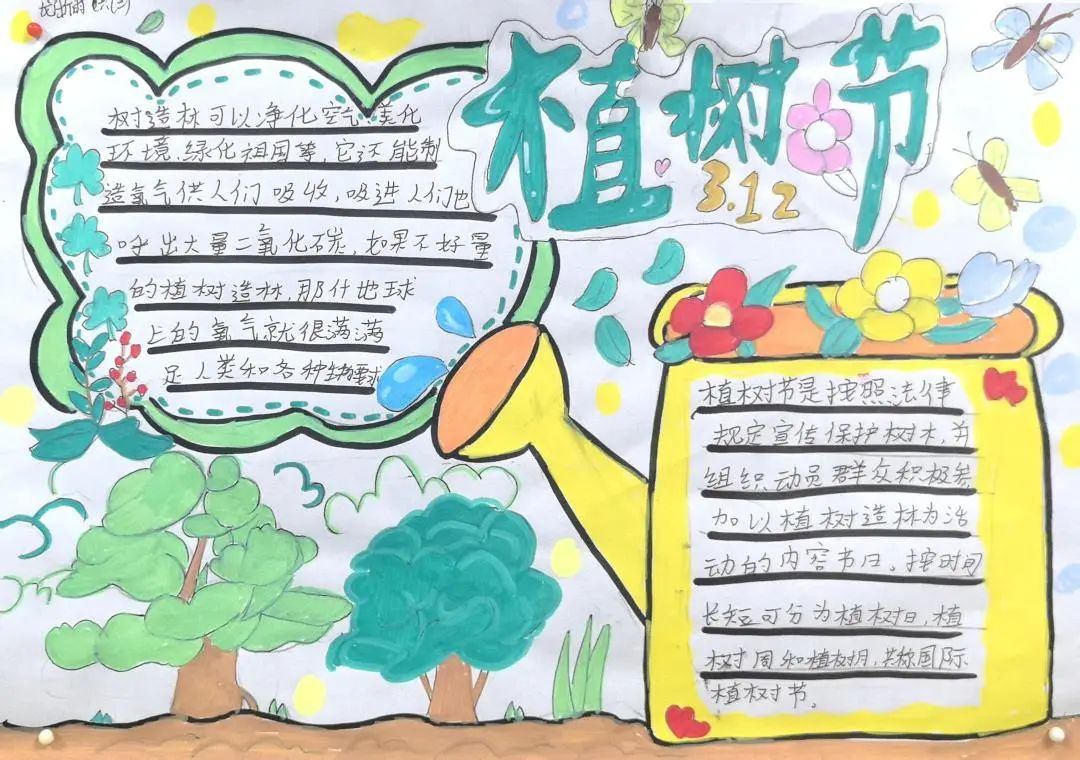 植树节
3.12
树造林可以净化空气、美化
环境、绿化祖国等,它还能制
造氧气供人们吸收,吸进人们也
呼出大量二氧化碳,如果不好量
的植树造林,那什地球
上的氧气就很满满
足人类和各种生物要求
植树节是按照法律
规定宣传保护树木,并
组织动员群众积极参
加以植树造林为活
动的内容节日。按时间
长短可分为植树日,植
树周和植树月,共称国际
植树节。